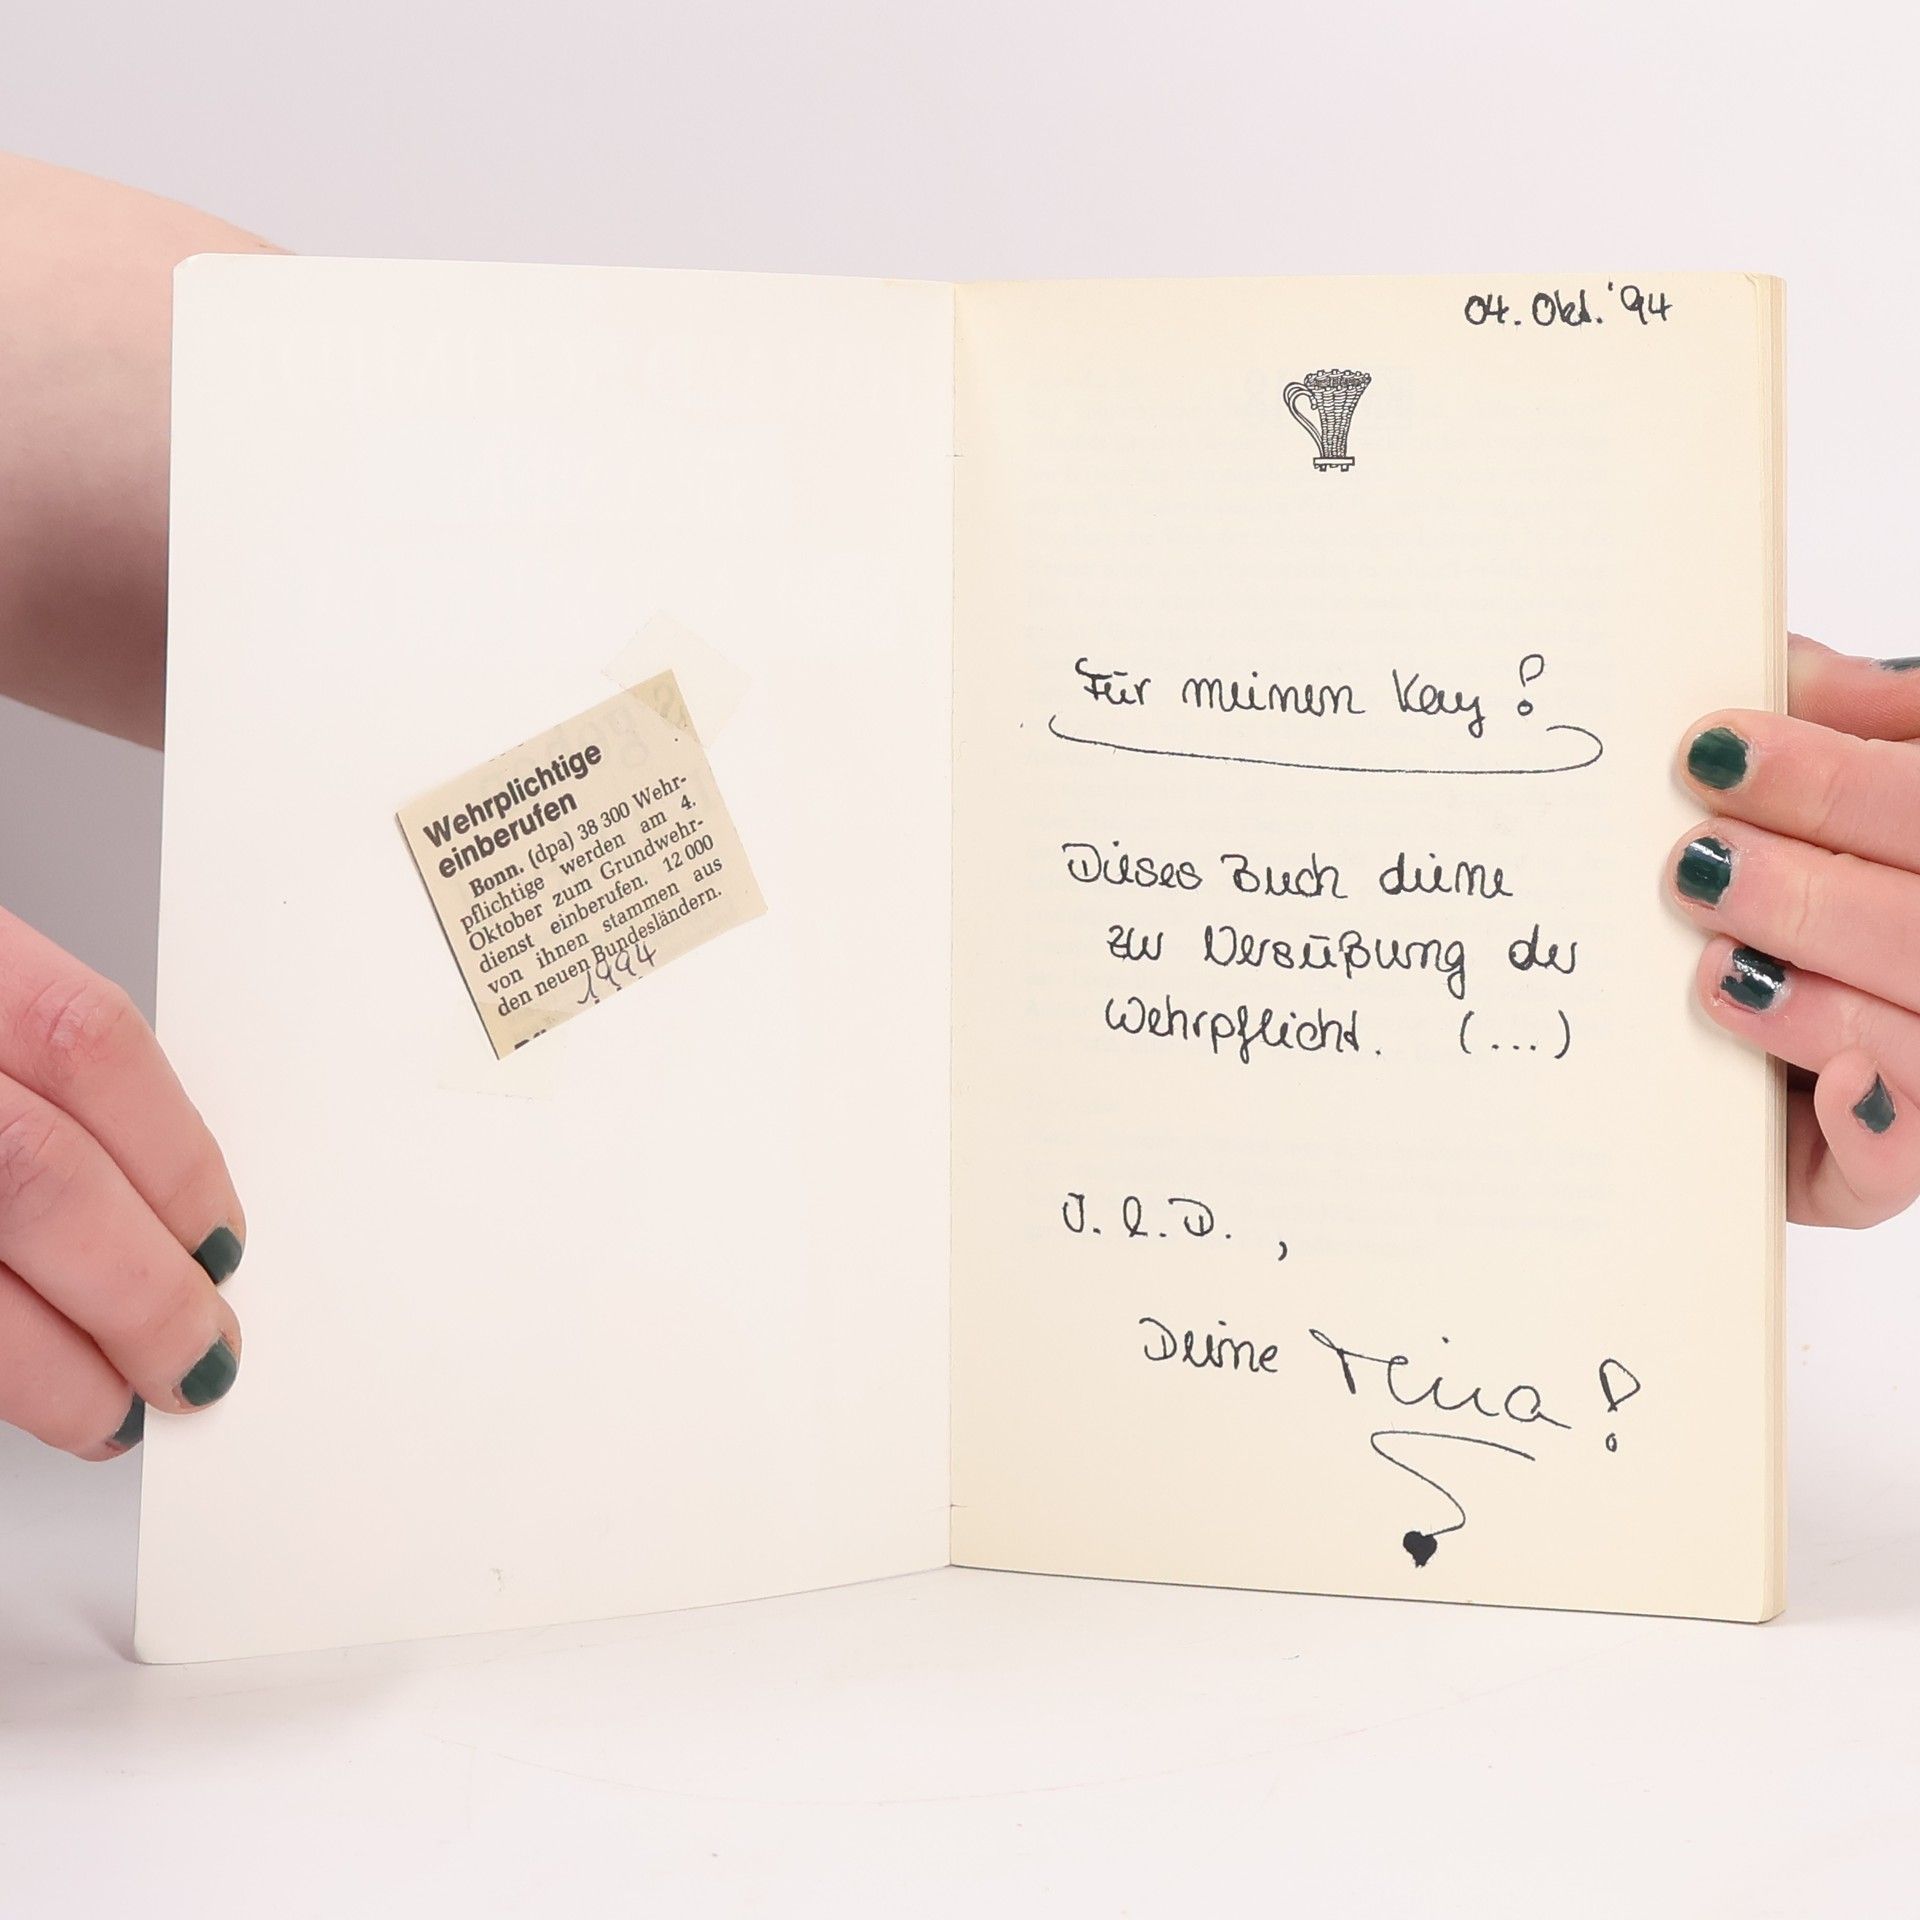 Wehrplichtige
einberufen
Bonn. (dpa) 38 300 Wehr-
pflichtige werden am 4.
Oktober zum Grundwehr-
dienst einberufen. 12 000
von ihnen stammen aus
den neuen Bundesländern.
1994
04. Okt. '94
Für meinen Kay!
Dieses Buch diene
zur Versüßung der
Wehrpflicht. (...)
I. l. D. ,
Deine Tina!